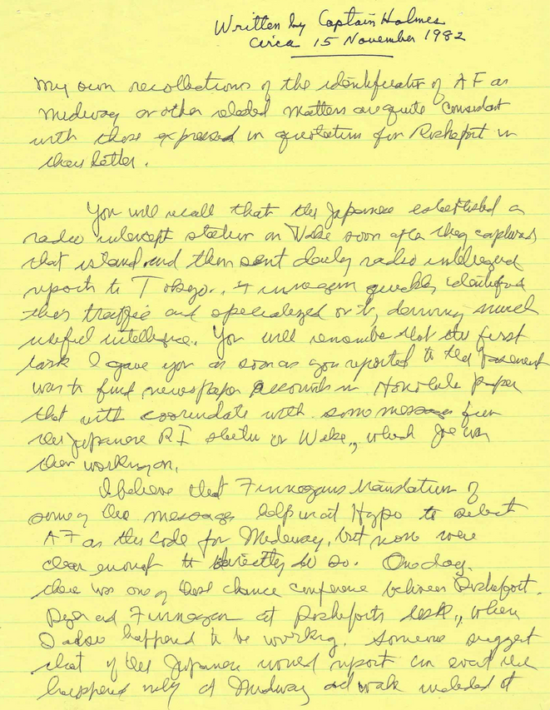 Written by Captain Holmes
circa 15 November 1982
My own recollections of the identification of AF as
Midway or other related matters are quite consistent
with those expressed in quotation for Rochefort in
their letter.
You will recall that the Japanese established a
radio intercept station on Wake soon after they captured
that island and then sent daily radio intelligence
reports to Tokyo. Finnegan quickly identified
their traffic and specialized on it, deriving much
useful intelligence. You will remember that the first
task I gave you as soon as you reported to the basement
was to find newspaper accounts in Honolulu paper
that with coorindate with some messages from
the Japanese RI station on Wake, which Joe was
then working on.
I believe that Finnegans translation of
some of the messages helped Hypo to select
AF as the code for Midway, but none were
clear enough to directly do so. One day
there was one of those chance conference between Rochefort
Dyer and Finnegan at Rocheforts desk, when
I also happened to be working. Someone suggest
that if the Japanese would report an event that
happened only at Midway and Wake